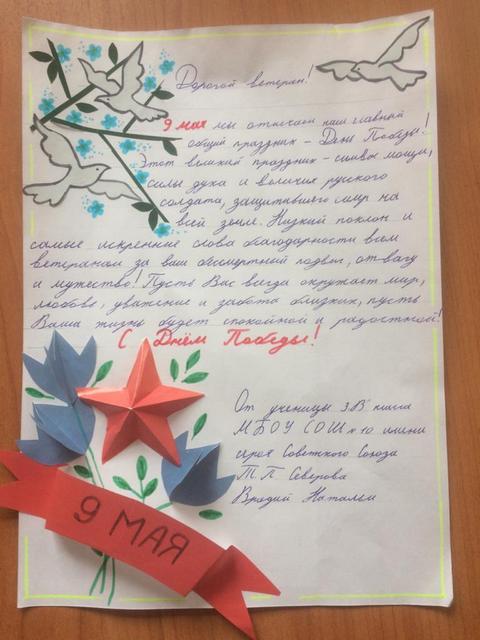 Дорогой ветеран!
9 мая мы отмечаем наш главный
общий праздник - День Победы!
Этот великий праздник - символ мощи,
силы духа и величия русского
солдата, защитившего мир на
всей земле. Низкий поклон и
самые искренние слова благодарности всем
ветеранам за ваш бессмертный подвиг, отвагу
и мужество! Пусть Вас всегда окружает мир,
любовь, уважение и забота близких, пусть
Ваша жизнь будет спокойной и радостной!
С Днём Победы!
От ученицы 3"В" класса
МБОУ СОШ № 10 имени
героя Советского Союза
Северова
Натальи
9 МАЯ